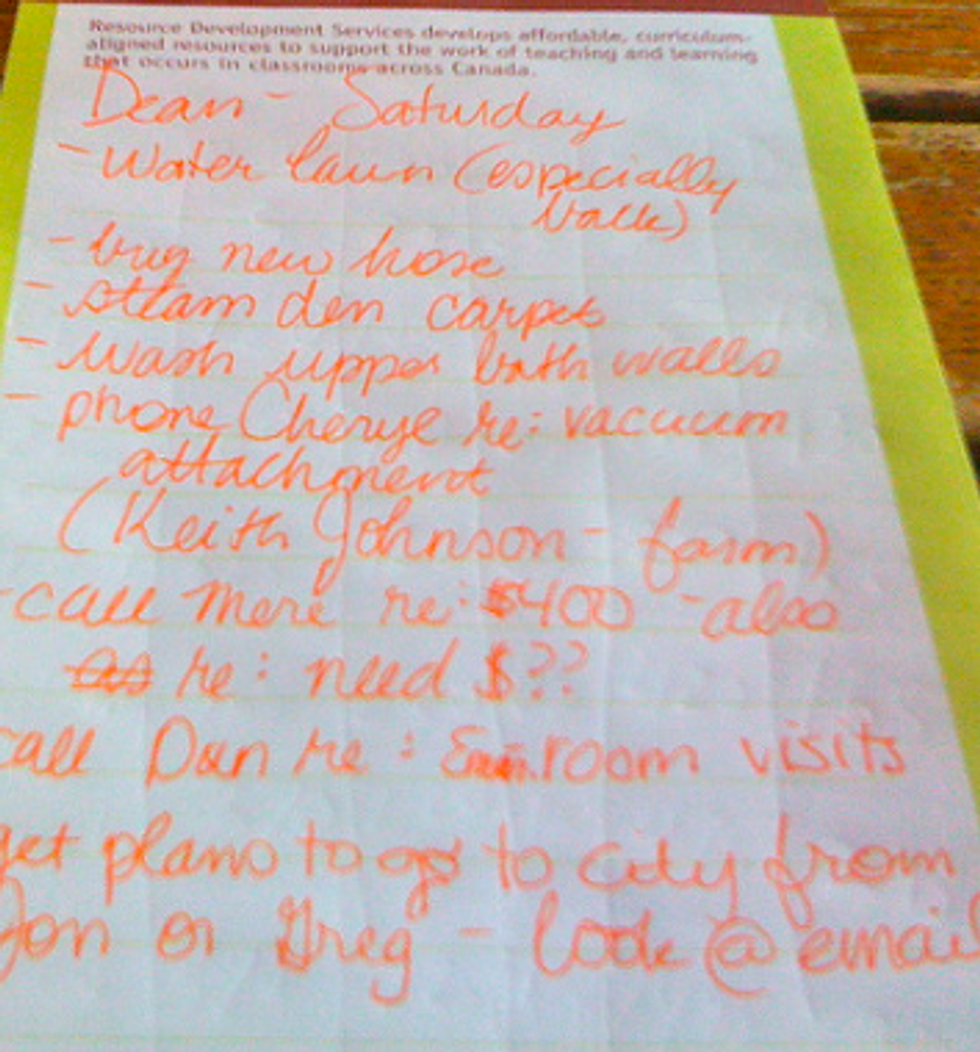 Resource Development Services develops affordable, curriculum-
aligned resources to support the work of teaching and learning
that occurs in classrooms across Canada.
Dean - Saturday
- Water lawn (especially
back)
- buy new hose
- steam den carpet
- Wash upper bath walls
- phone Cheryl re: vacuum
attachment
(Keith Johnson - farm)
- call Mere re: $400 - also
re: need $??
call Dan re: room visits
get plans to go to city from
Jon or Greg - look @ email